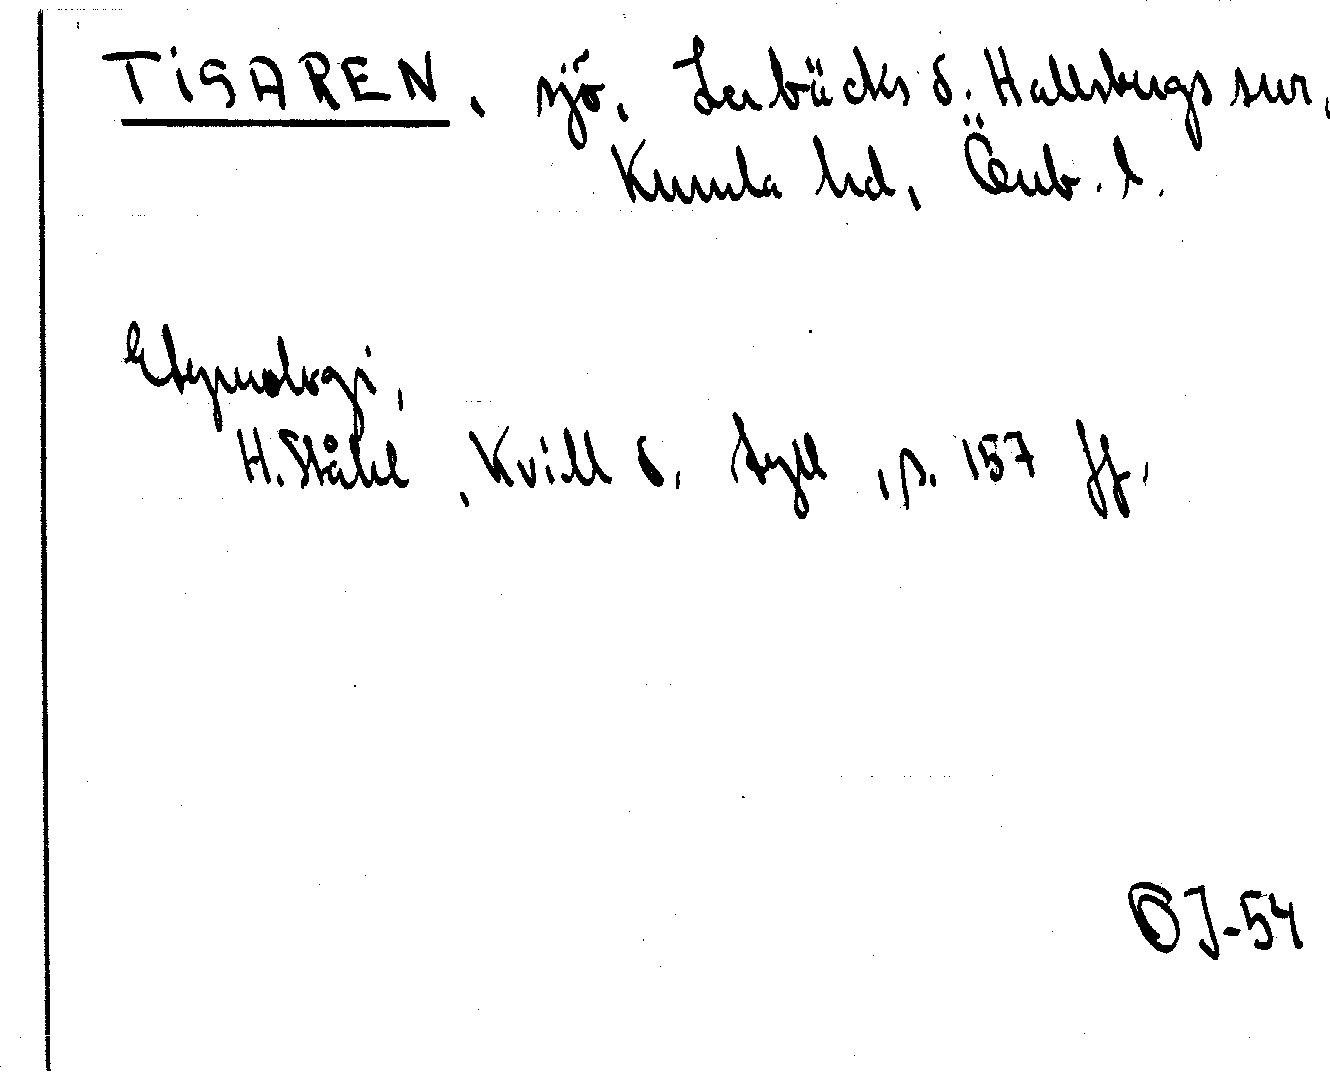 TISAREN, sjö, Lerbäcks o. Hallsbergs snr,
Kumla hd, Öreb. l.
Etymologi,
H. Ståhl, Kvill o. Tyll, s. 157 ff.
OJ-54